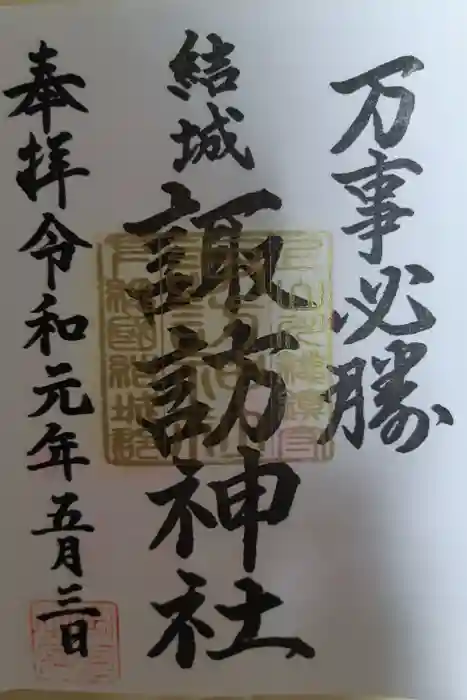 万事必勝
結城
諏訪神社
奉拝令和元年五月三日